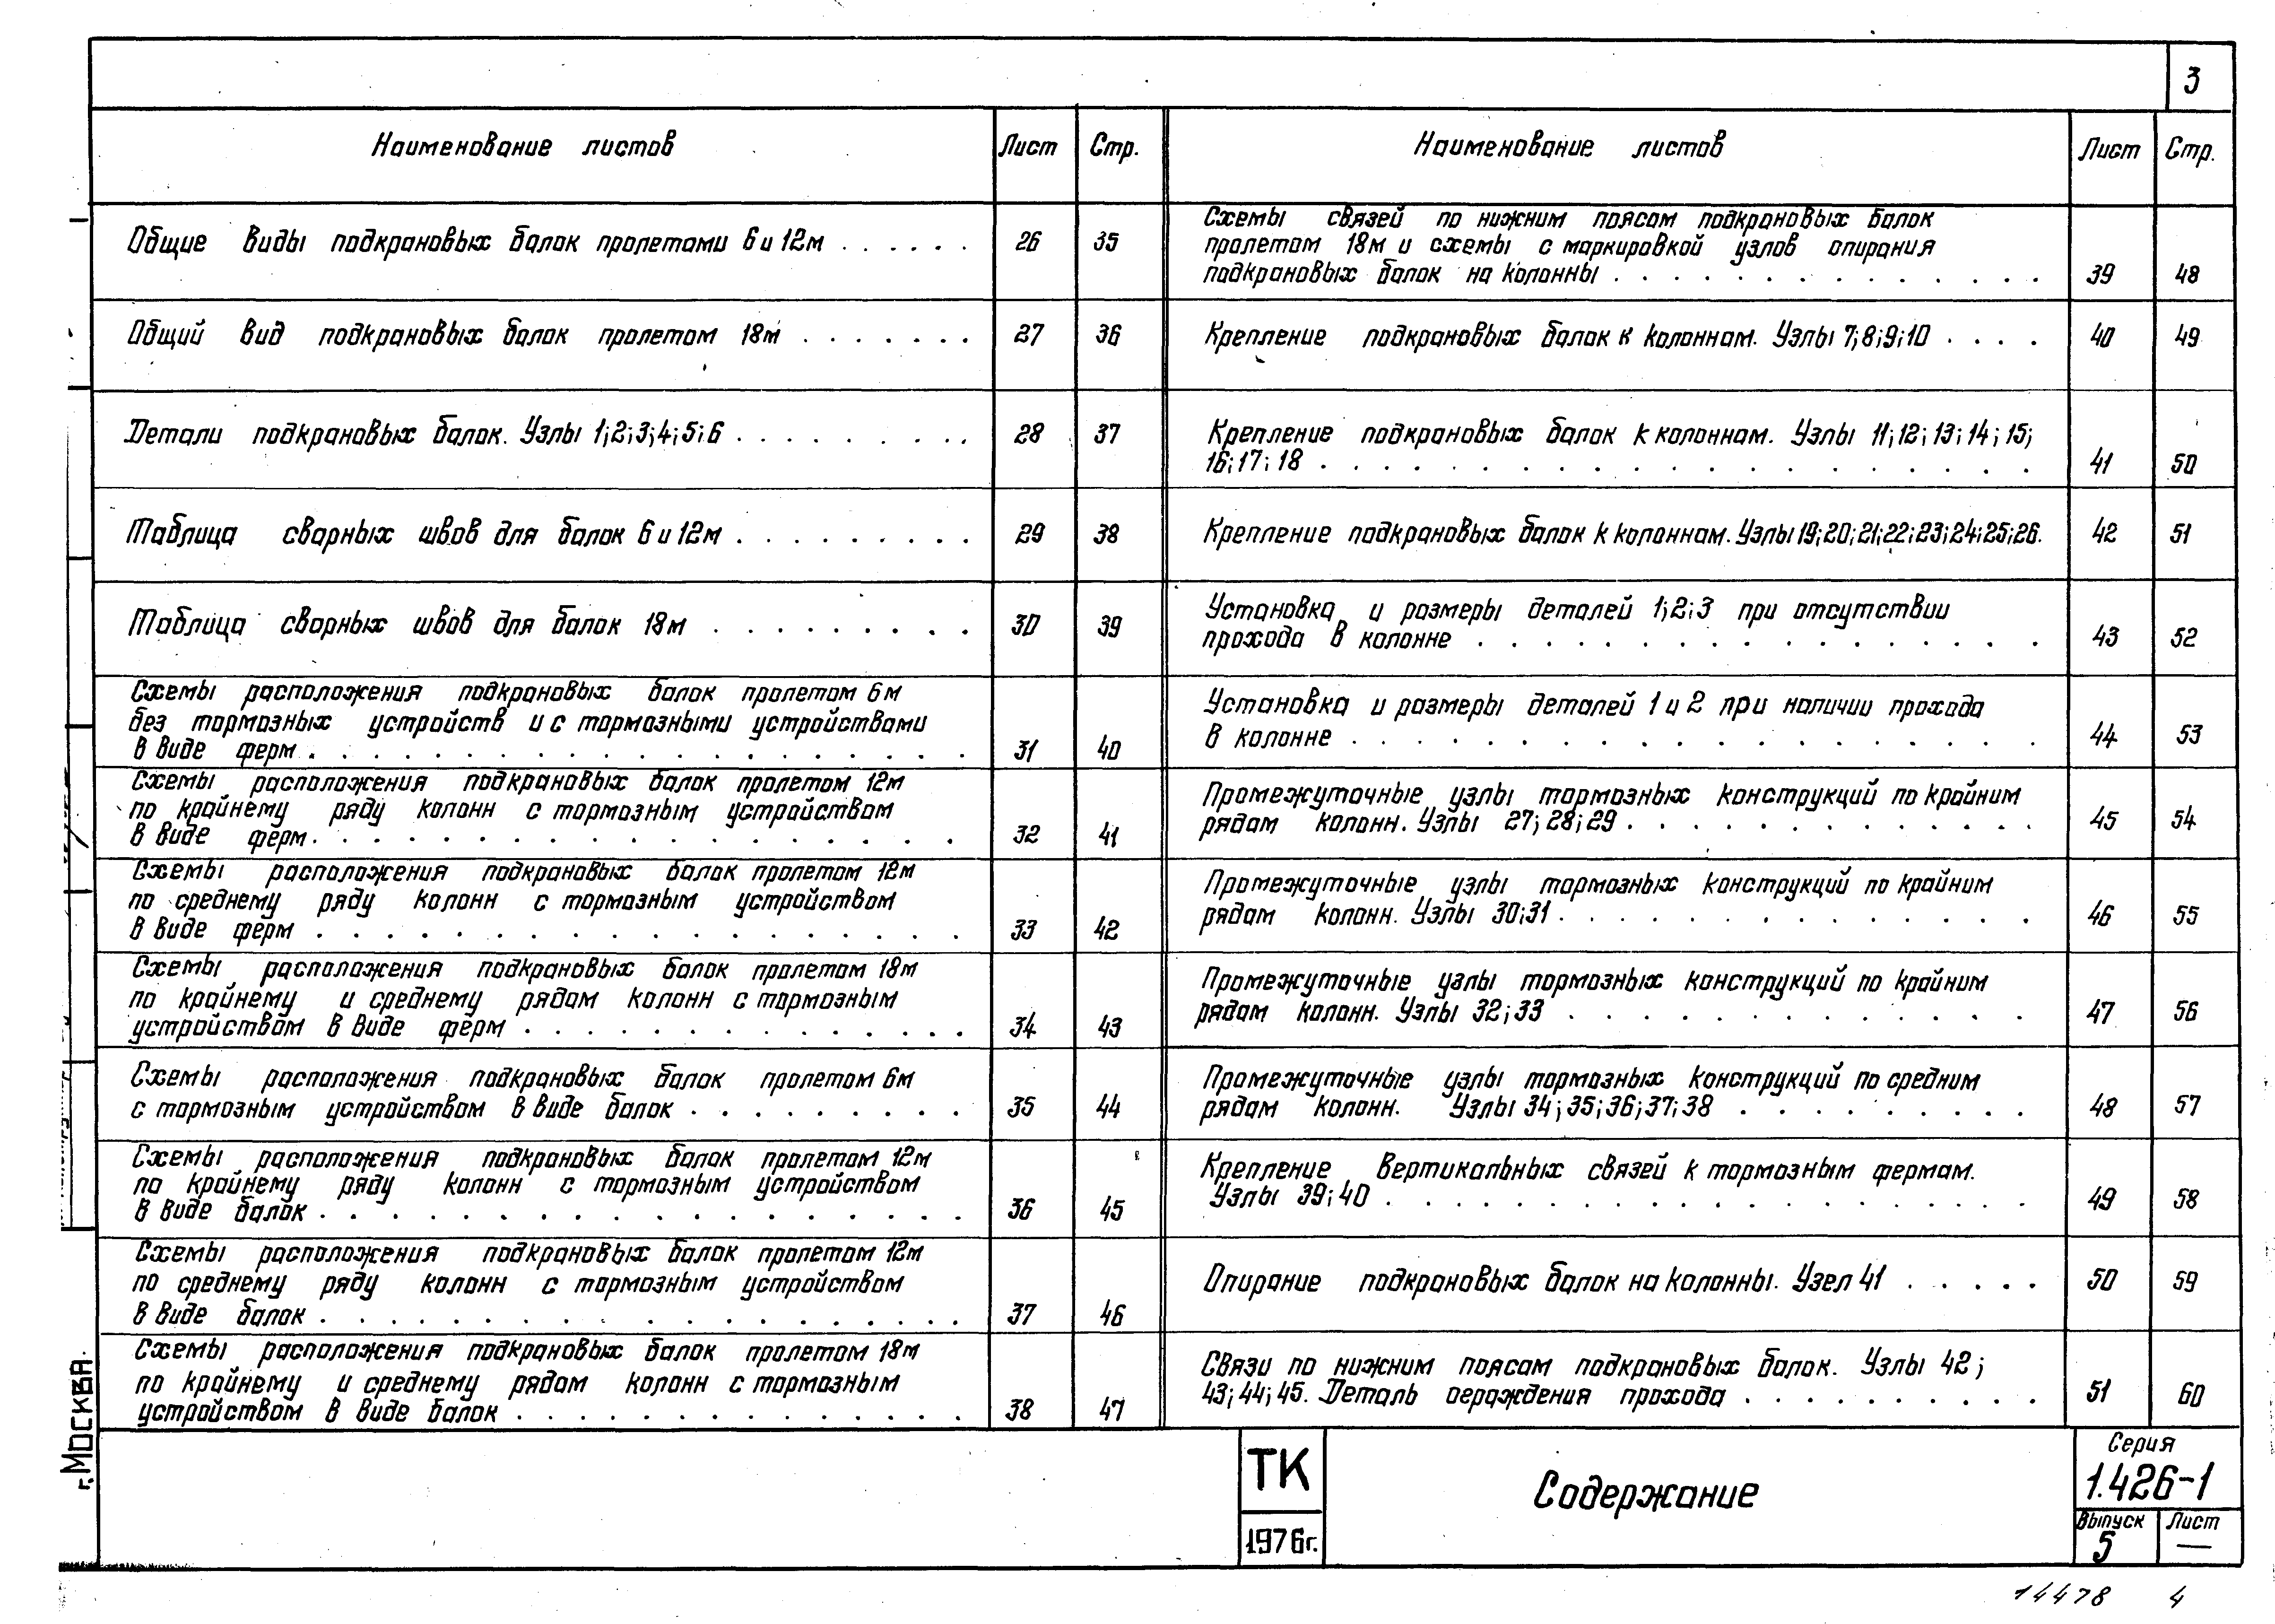 3
Наименование листов Лист Стр.
Общие виды подкрановых балок пролетами 6 и 12м . . . . . . 26 35
Общий вид подкрановых балок пролетом 18м . . . . . . . 27 36
Детали подкрановых балок. Узлы 1;2;3;4;5;6 . . . . . . . . . 28 37
Таблица сварных швов для балок 6 и 12м . . . . . . . . . 29 38
Таблица сварных швов для балок 18м . . . . . . . . . 30 39
Схемы расположения подкрановых балок пролетом 6м
без тормозных устройств и с тормозными устройствами
в виде ферм . . . . . . . . . . . . . . . . 31 40
Схемы расположения подкрановых балок пролетом 12м
по крайнему ряду колонн с тормозным устройством
в виде ферм . . . . . . . . . . . . . . . . 32 41
Схемы расположения подкрановых балок пролетом 12м
по среднему ряду колонн с тормозным устройством
в виде ферм . . . . . . . . . . . . . . . . 33 42
Схемы расположения подкрановых балок пролетом 18м
по крайнему и среднему рядам колонн с тормозным
устройством в виде ферм . . . . . . . . . . . . 34 43
Схемы расположения подкрановых балок пролетом 6м
с тормозным устройством в виде балок . . . . . . . . 35 44
Схемы расположения подкрановых балок пролетом 12м
по крайнему ряду колонн с тормозным устройством
в виде балок . . . . . . . . . . . . . . . . 36 45
Схемы расположения подкрановых балок пролетом 12м
по среднему ряду колонн с тормозным устройством
в виде балок . . . . . . . . . . . . . . . . 37 46
Схемы расположения подкрановых балок пролетом 18м
по крайнему и среднему рядам колонн с тормозным
устройством в виде балок . . . . . . . . . . . . 38 47
Наименование листов Лист Стр.
Схемы связей по нижним поясам подкрановых балок
пролетом 18м и схемы с маркировкой узлов опирания
подкрановых балок на колонны . . . . . . . . . . . . 39 48
Крепление подкрановых балок к колоннам. Узлы 7;8;9;10 . . . . 40 49
Крепление подкрановых балок к колоннам. Узлы 11;12;13;14;15;
16;17;18 . . . . . . . . . . . . . . . . 41 50
Крепление подкрановых балок к колоннам. Узлы 19;20;21;22;23;24;25;26. 42 51
Установка и размеры деталей 1;2;3 при отсутствии
прохода в колонне . . . . . . . . . . . . . . . 43 52
Установка и размеры деталей 1 и 2 при наличии прохода
в колонне . . . . . . . . . . . . . . . . . 44 53
Промежуточные узлы тормозных конструкций по крайним
рядам колонн. Узлы 27;28;29 . . . . . . . . . . . . 45 54
Промежуточные узлы тормозных конструкций по крайним
рядам колонн. Узлы 30;31 . . . . . . . . . . . . 46 55
Промежуточные узлы тормозных конструкций по крайним
рядам колонн. Узлы 32;33 . . . . . . . . . . . . 47 56
Промежуточные узлы тормозных конструкций по средним
рядам колонн. Узлы 34;35;36;37;38 . . . . . . . . . 48 57
Крепление вертикальных связей к тормозным фермам.
Узлы 39;40 . . . . . . . . . . . . . . . . 49 58
Опирание подкрановых балок на колонны. Узел 41 . . . . . 50 59
Связи по нижним поясам подкрановых балок. Узлы 42;
43;44;45. Деталь ограждения прохода . . . . . . . . . . 51 60
г. Москва.
ТК
1976г.
Содержание
Серия
1.426-1
Выпуск Лист
5 —
14478 4